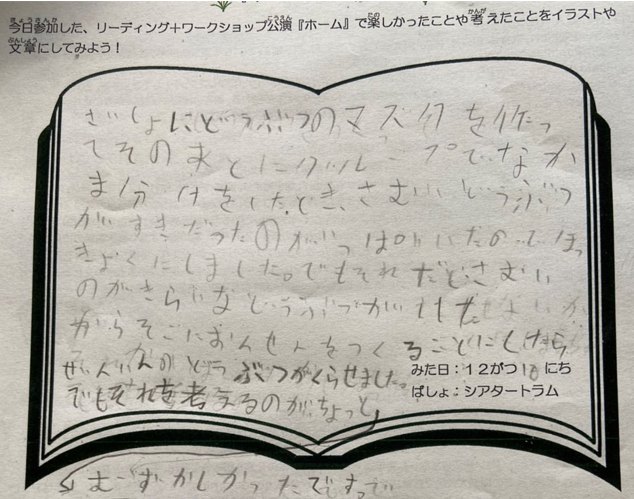 今日参加した、リーディング+ワークショップ公演『ホーム』で楽しかったことや考えたことをイラストや
文章にしてみよう！
さいしょにどうぶつのマスクを作っ
てそのあとにグループでなか
ま分けをしたとき、さむいどうぶつ
がすきだったのがいっぱいいたのでほっ
きょくにしました。でもそれだとさむい
のがきらいなどうぶつが
からそこにおんせんをつくることにしたら
ぜんいんのどうぶつがくらせました。
みた日：12がつ10にち
ばしょ：シアタートラム
でもそれを考えるのがちょっと
むずかしかったですって